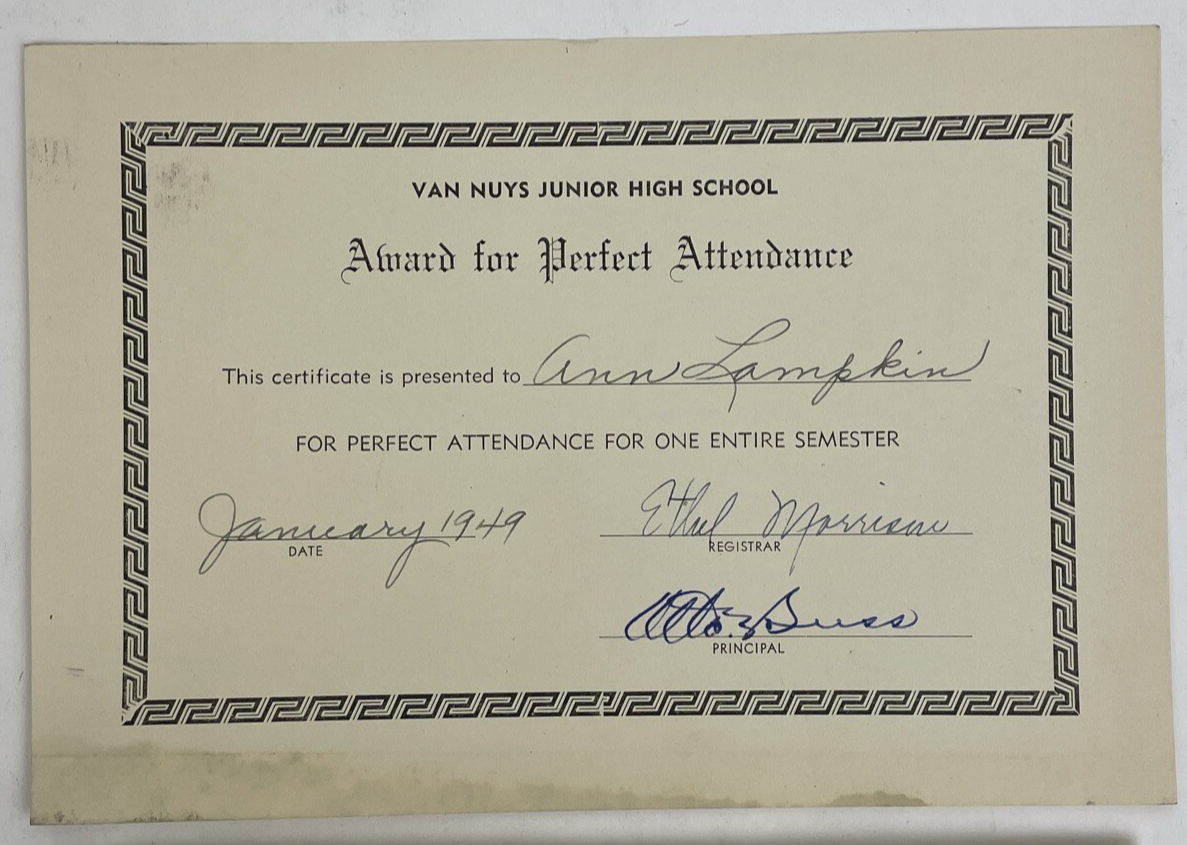 VAN NUYS JUNIOR HIGH SCHOOL
Award for Perfect Attendance
This certificate is presented to Ann Lampkin
FOR PERFECT ATTENDANCE FOR ONE ENTIRE SEMESTER
January 1949 Ethel Morrison
DATE REGISTRAR
Buss
PRINCIPAL